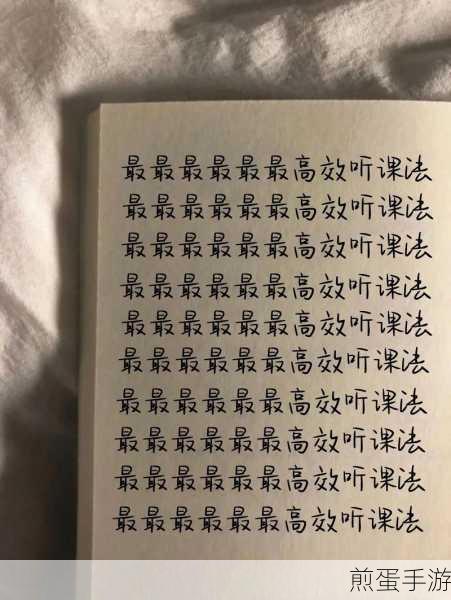 最最最最最最高效听课法
最最最最最最高效听课法
最最最最最最高效听课法
最最最最最最高效听课法
最最最最最最高效听课法
最最最最最最高效听课法
最最最最最最高效听课法
最最最最最最高效听课法
最最最最最最高效听课法
最最最最最最高效听课法
煎蛋手游